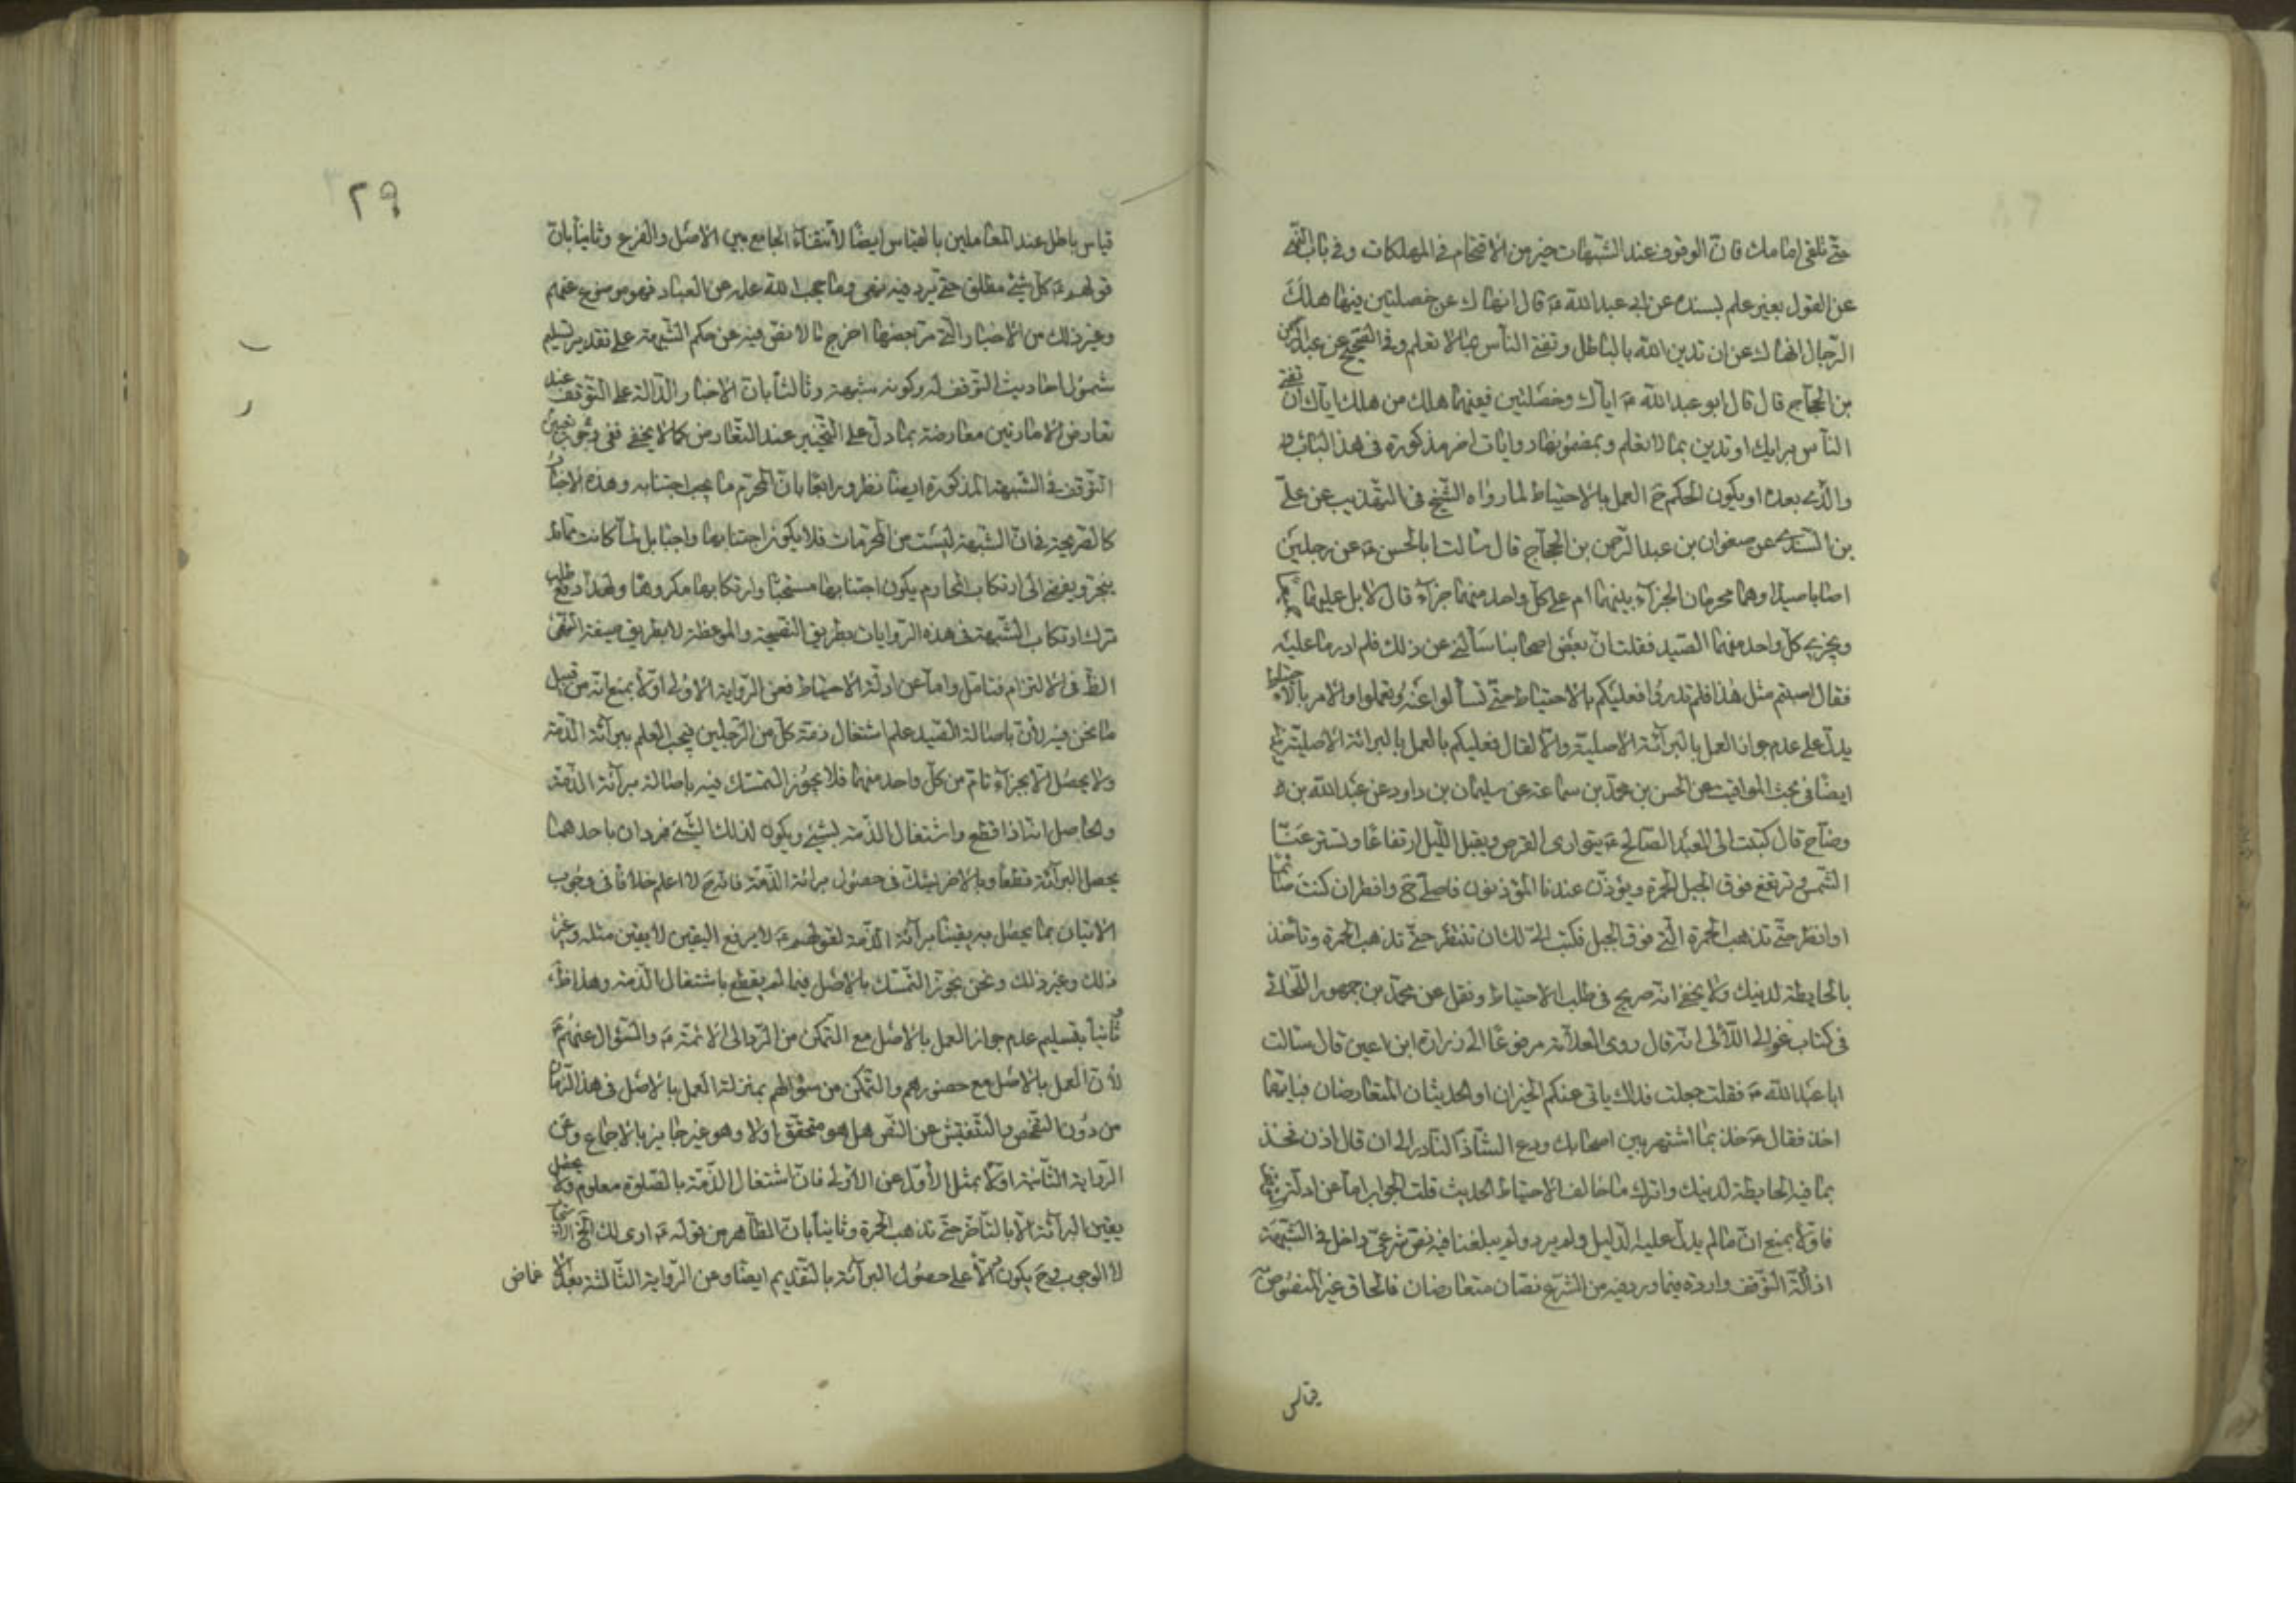 حتّى تلقى امامك فانّ الوقوف عند الشّبهات خير من الاقتحام فى المهلكات وفى باب النّهى
عن القول بغير علم بسنده عن ابى عبد الله ع قال انهاك عن خصلتين فيهما هلك
الرّجال انهاك عن ان تدين الله بالباطل وتفتى النّاس بما لا تعلم وفى الصّحيح عن عبد الرّحمن
بن الحجّاج قال قال ابو عبد الله ع ايّاك وخصلتين ففيهما هلك من هلك ايّاك ان تفتى
النّاس برايك او تدين بما لا تعلم وبمضمونهما روايات اخر مذكورة فى هذا الباب
والّذى بعده او يكون الحكم ح العمل بالاحتياط لما رواه الشّيخ فى التهذيب عن علىّ
بن السّندى عن صفوان بن عبد الرّحمن بن الحجّاج قال سالت ابا الحسن ع عن رجلين
اصابا صيدا وهما محرمان الجزاء بينهما ام على كلّ واحد منهما جزاء قال لا بل عليهما
ويجزى كلّ واحد منهما الصّيد فقلت انّ بعض اصحابنا سألنى عن ذلك فلم ادر ما عليه
فقال اصبتم مثل هذا فلم تدروا فعليكم بالاحتياط حتّى تسألوا عنه وتعلموا والامر بالاحتياط
يدلّ على عدم جواز العمل بالبرائة الاصليّة والّا لقال فعليكم بالعمل بالبرائة الاصليّة
ايضا فى بحث المواقيت عن الحسن بن محمّد بن سماعة عن سليمان بن داود عن عبد الله بن
وضّاح قال كتبت الى العبد الصّالح ع يتوارى القرص ويقبل اللّيل ارتفاعا وتستتر عنّا
الشّمس وترتفع فوق الجبل الحمرة ويؤذّن عندنا المؤذنون فاصلّى ح وافطر ان كنت صائما
او انتظر حتّى تذهب الحمرة الّتى فوق الجبل فكتب الىّ ارى لك ان تنتظر حتّى تذهب الحمرة وتاخذ
بالحايطة لدينك ولا يخفى انّه صريح فى طلب الاحتياط ونقل عن محمّد بن جمهور اللّحائى
فى كتاب غوالى اللّآلى انّه قال روى العلّامة مرفوعا الى زرارة ابن اعين قال سالت
ابا عبد الله ع فقلت جعلت فداك ياتى عنكم الخبران او الحديثان المتعارضان فبايّهما
اخذ فقال ع خذ بما اشتهر بين اصحابك ودع الشّاذ النّادر الى ان قال اذن فخذ
بما فيه الحايطة لدينك واترك ما خالف الاحتياط الحديث قلت الجواب امّا عن ادلّة
فاوّلا بمنع انّ ما لم يدلّ عليه الدّليل ولم يرد ولم يبلغنا فيه نصّ شرعىّ داخل فى الشّبهة
اذ ادلّة التّوقّف واردة فيما ورد فيه من الشّرع نصّان متعارضان فالحاق غير المنصوص
قياس
٢٩
قياس باطل عند العاملين بالقياس ايضا لانتفاء الجامع بين الاصل والفرع وثانيا بانّ
قولهم ع كلّ شئ مطلق حتّى يرد فيه نهى وما حجب الله علمه عن العباد فهو موضوع عنهم
وغير ذلك من الاخبار الّتى مرّ بعضها اخرج ما لا نصّ فيه عن حكم الشّبهة على تقدير تسليم
شمول احاديث التّوقف له وكونه شبهة وثالثا بانّ الاخبار الدّالة على التّوقف عند
تعارض الامارتين معارضة بما دلّ على التّخيير عند التّعارض كما لا يخفى ففى وجوب تعيين
التّوقف فى الشّبهة المذكورة ايضا نظر ورابعا بانّ المحرّم ما يجب اجتنابه وهذه الاخبار
كالصّريحة فى انّ الشّبهة ليست من المحرّمات فلا يكون اجتنابها واجبا بل لمّا كانت ممّا قد
ينجرّ ويفضى الى ارتكاب المحارم يكون اجتنابها مستحبّا وارتكابها مكروها ولهذا وقع طلب
ترك ارتكاب الشّبهة فى هذه الرّوايات بطريق النّصيحة والموعظة لا بطريق صيغة النّهى
الظّ فى الالتزام فتامّل وامّا عن ادلّة الاحتياط فعن الرّواية الاولى اوّلا بمنع انّه من قبيل
ما نحن فيه لانّ باصابة الصّيد علم اشتغال ذمّة كلّ من الرّجلين فيجب العلم ببرائة الذّمّة
ولا يحصل الّا بجزاء تامّ من كلّ واحد منهما فلا يجوز التّمسّك فيه باصالة برائة الذّمّة
والحاصل انّه اذا قطع واشتغال الذّمّة بشئ ويكون لذلك الشّئ فردان باحدهما
يحصل البرائة قطعا وبالاخر يشكّ فى حصول برائة الذّمّة فانّه ح لا اعلم خلافا فى وجوب
الاتيان بما يحصل به يقينا برائة الذّمّة لقولهم ع لا يرفع اليقين الا يقين مثله وغير
ذلك وغير ذلك ونحن نجوّز التّمسّك بالاصل فيما لم يقطع باشتغال الذّمّة وهذا ظ
وثانيا بتسليم عدم جواز العمل بالاصل مع التّمكّن من الرّد الى الائمّة ع والسّؤال عنهم ع
لانّ العمل بالاصل مع حضورهم والتّمكّن من سؤالهم بمنزلة العمل بالاصل فى هذا الزّمان
من دون التّفحّص والتّفتيش عن النّص هل هو متحقّق اولا وهو غير جايز بالاجماع وعن
الرّواية الثّانية اوّلا بمثل الاوّل عن الاولى فانّ اشتغال الذّمّة بالصّلوة معلوم ولا يحصل
يقين البرائة الّا بالتّاخّر حتّى تذهب الحمرة وثانيا بانّ الظّاهر من قوله ع ارى لك الخ الاستحباب
لا الوجوب وح يكون دالّا على حصول البرائة بالتّقديم ايضا وعن الرّواية الثّالثة بعد الا غماض